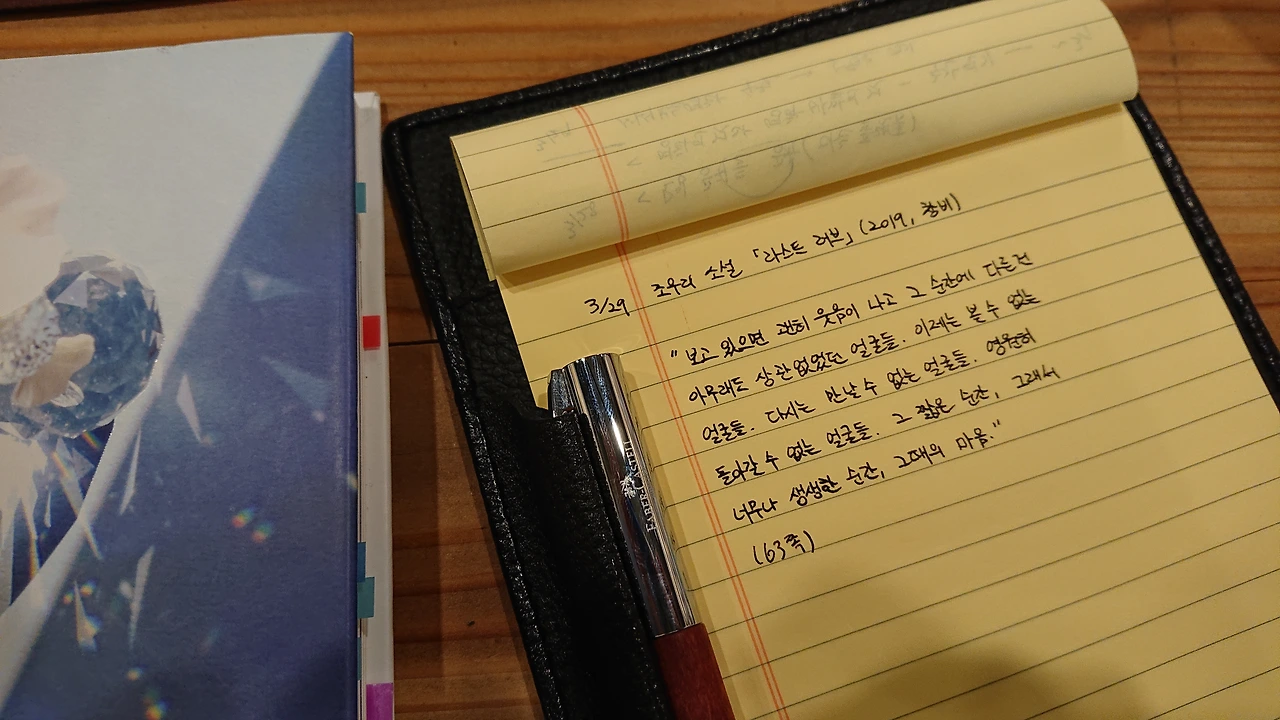 3/29 조우리 소설 「라스트 러브」 (2019, 창비)
"보고 있으면 괜히 웃음이 나고 그 순간에 다른건
아무래도 상관없었던 얼굴들. 이제는 볼 수 없는
얼굴들. 다시는 만날 수 없는 얼굴들. 영원히
돌아갈 수 없는 얼굴들. 그 짧은 순간, 그래서
너무나 생생한 순간, 그때의 마음."
(63쪽)
FABER-CASTELL